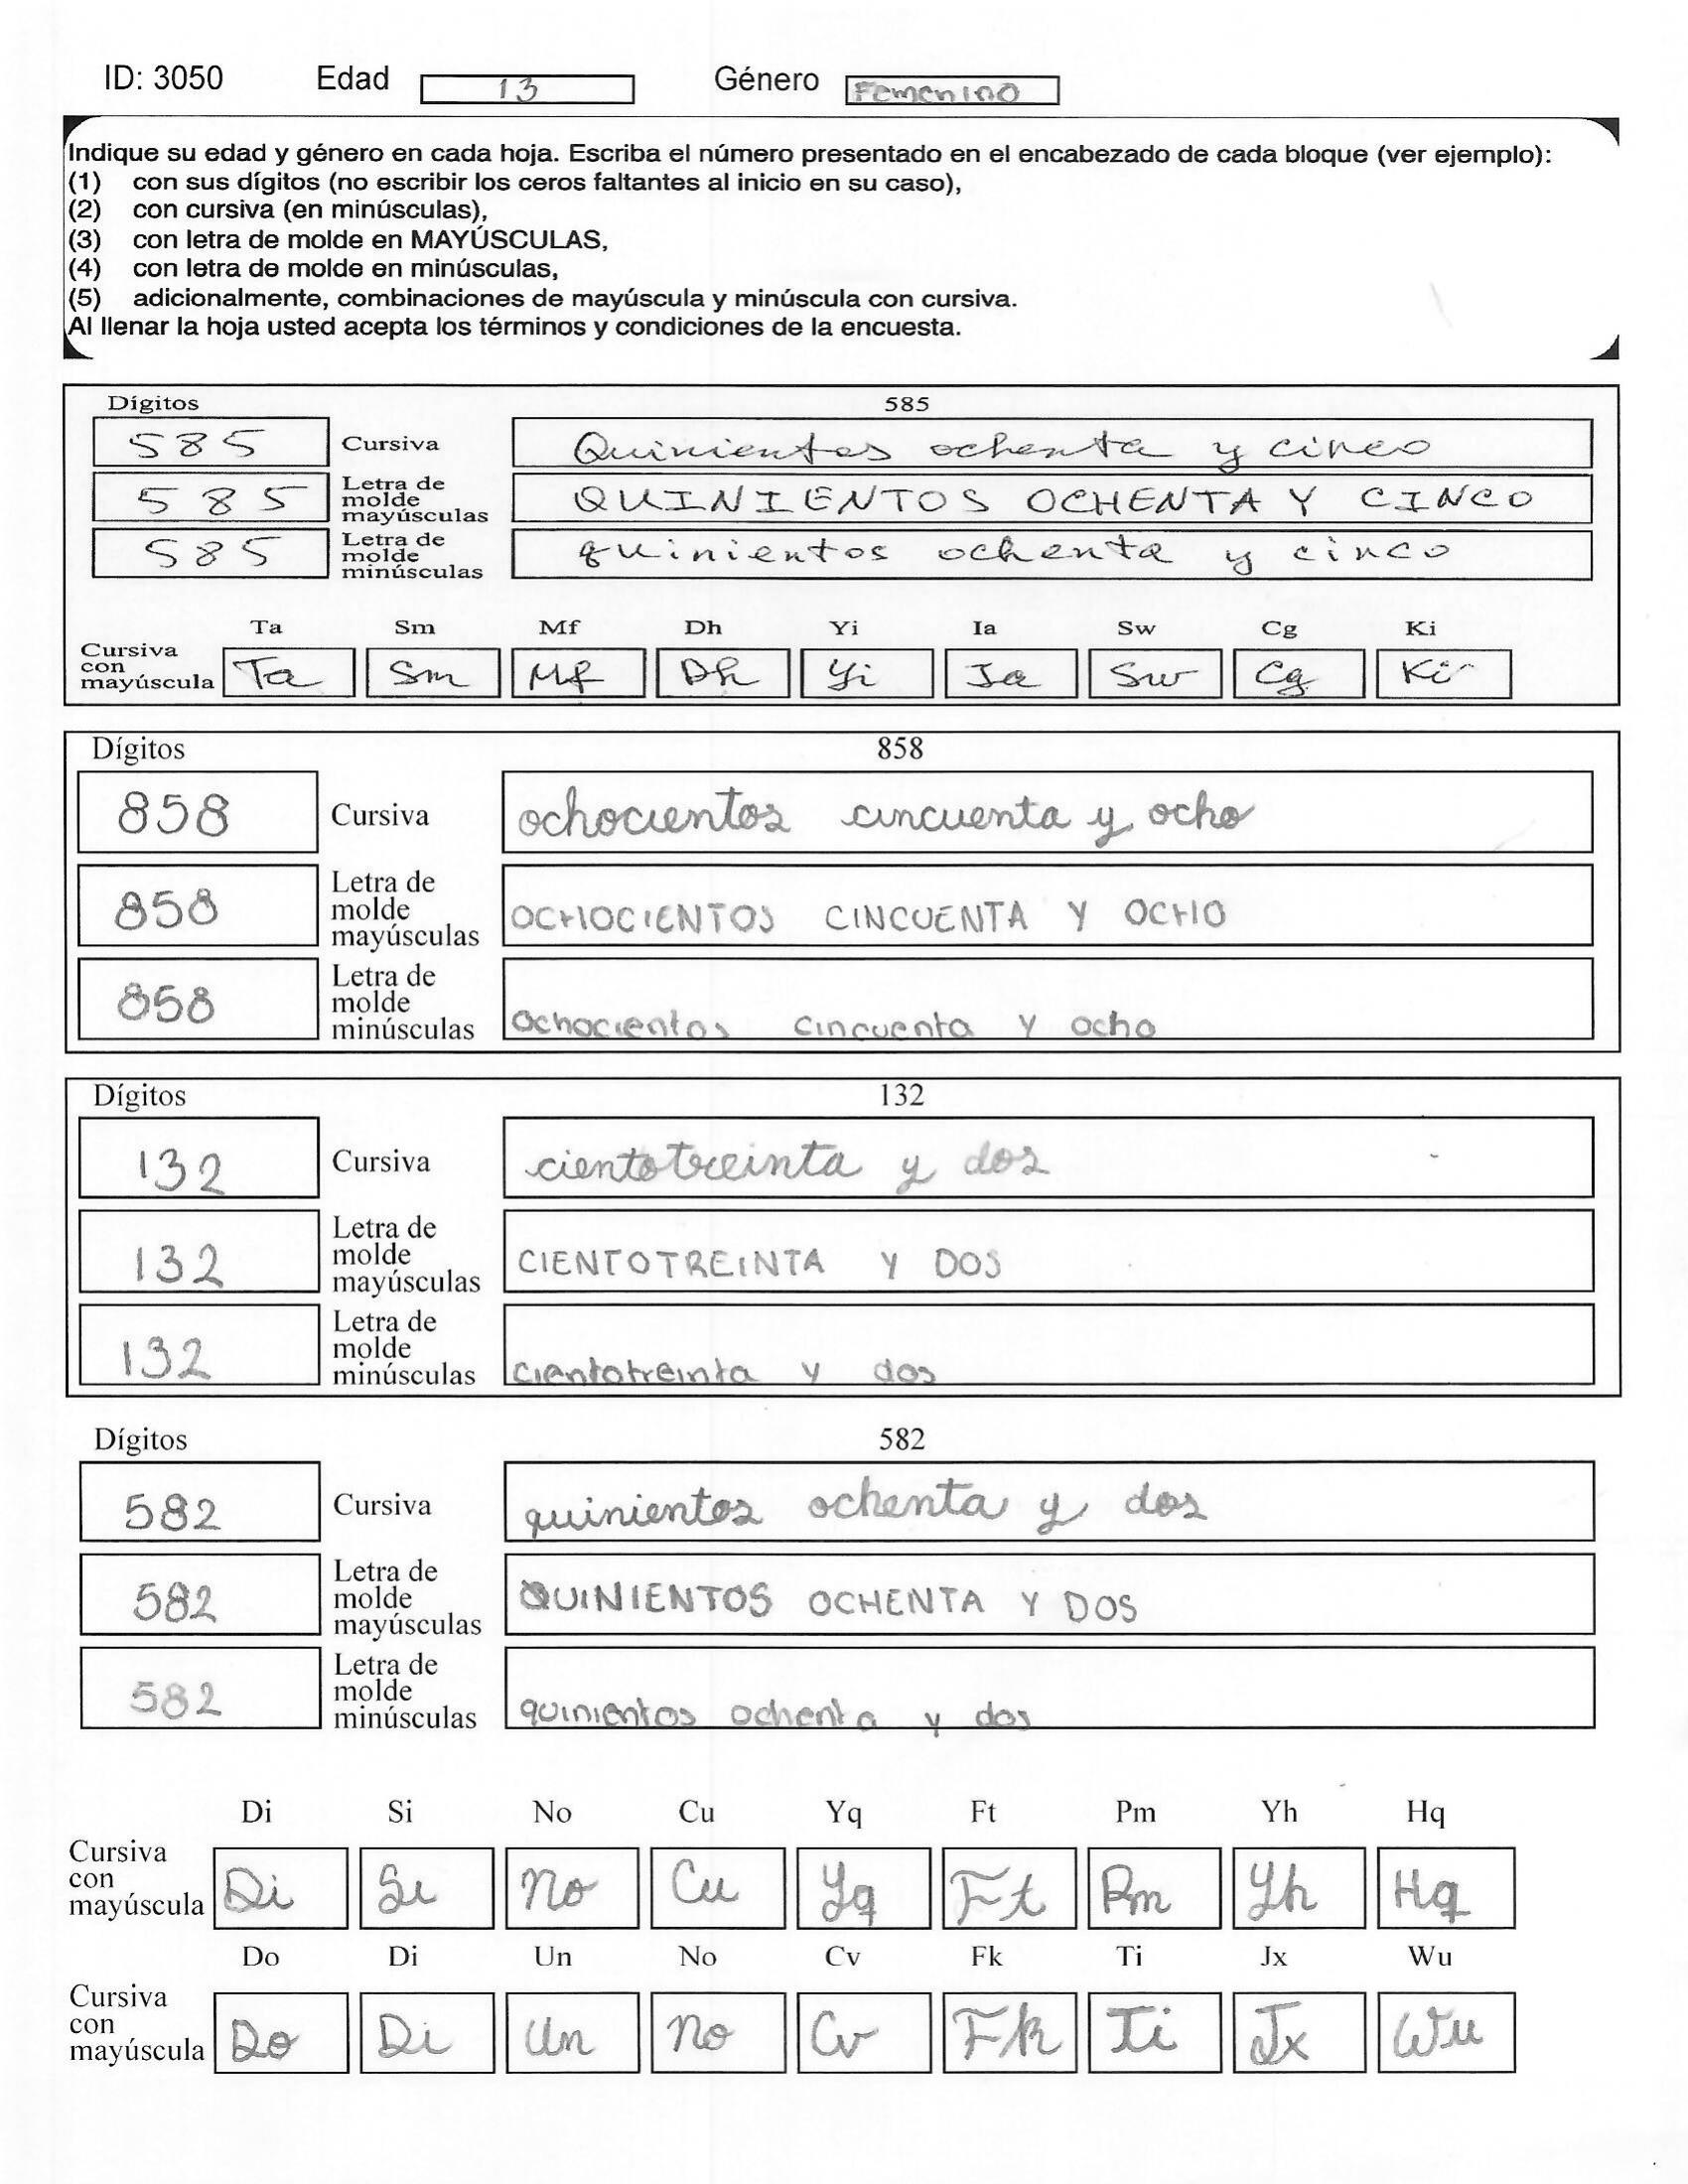 ID: 3050 Edad 13 Género Femenino
Indique su edad y género en cada hoja. Escriba el número presentado en el encabezado de cada bloque (ver ejemplo):
(1) con sus dígitos (no escribir los ceros faltantes al inicio en su caso),
(2) con cursiva (en minúsculas),
(3) con letra de molde en MAYÚSCULAS,
(4) con letra de molde en minúsculas,
(5) adicionalmente, combinaciones de mayúscula y minúscula con cursiva.
Al llenar la hoja usted acepta los términos y condiciones de la encuesta.
Dígitos 585
585 Cursiva Quinientos ochenta y cinco
585 Letra de molde mayúsculas QUINIENTOS OCHENTA Y CINCO
585 Letra de molde minúsculas quinientos ochenta y cinco
Ta Sm Mf Dh Yi Ia Sw Cg Ki
Cursiva con mayúscula Ta Sm Mf Dh Yi Ia Sw Cg Ki
Dígitos 858
858 Cursiva ochocientos cincuenta y ocho
858 Letra de molde mayúsculas OCHOCIENTOS CINCUENTA Y OCHO
858 Letra de molde minúsculas ochocientos cincuenta y ocho
Dígitos 132
132 Cursiva cientotreinta y dos
132 Letra de molde mayúsculas CIENTOTREINTA Y DOS
132 Letra de molde minúsculas cientotreinta y dos
Dígitos 582
582 Cursiva quinientos ochenta y dos
582 Letra de molde mayúsculas QUINIENTOS OCHENTA Y DOS
582 Letra de molde minúsculas quinientos ochenta y dos
Di Si No Cu Yq Ft Pm Yh Hq
Cursiva con mayúscula Di Si No Cu Yq Ft Pm Yh Hq
Do Di Un No Cv Fk Ti Jx Wu
Cursiva con mayúscula Do Di Un No Cv Fk Ti Jx Wu